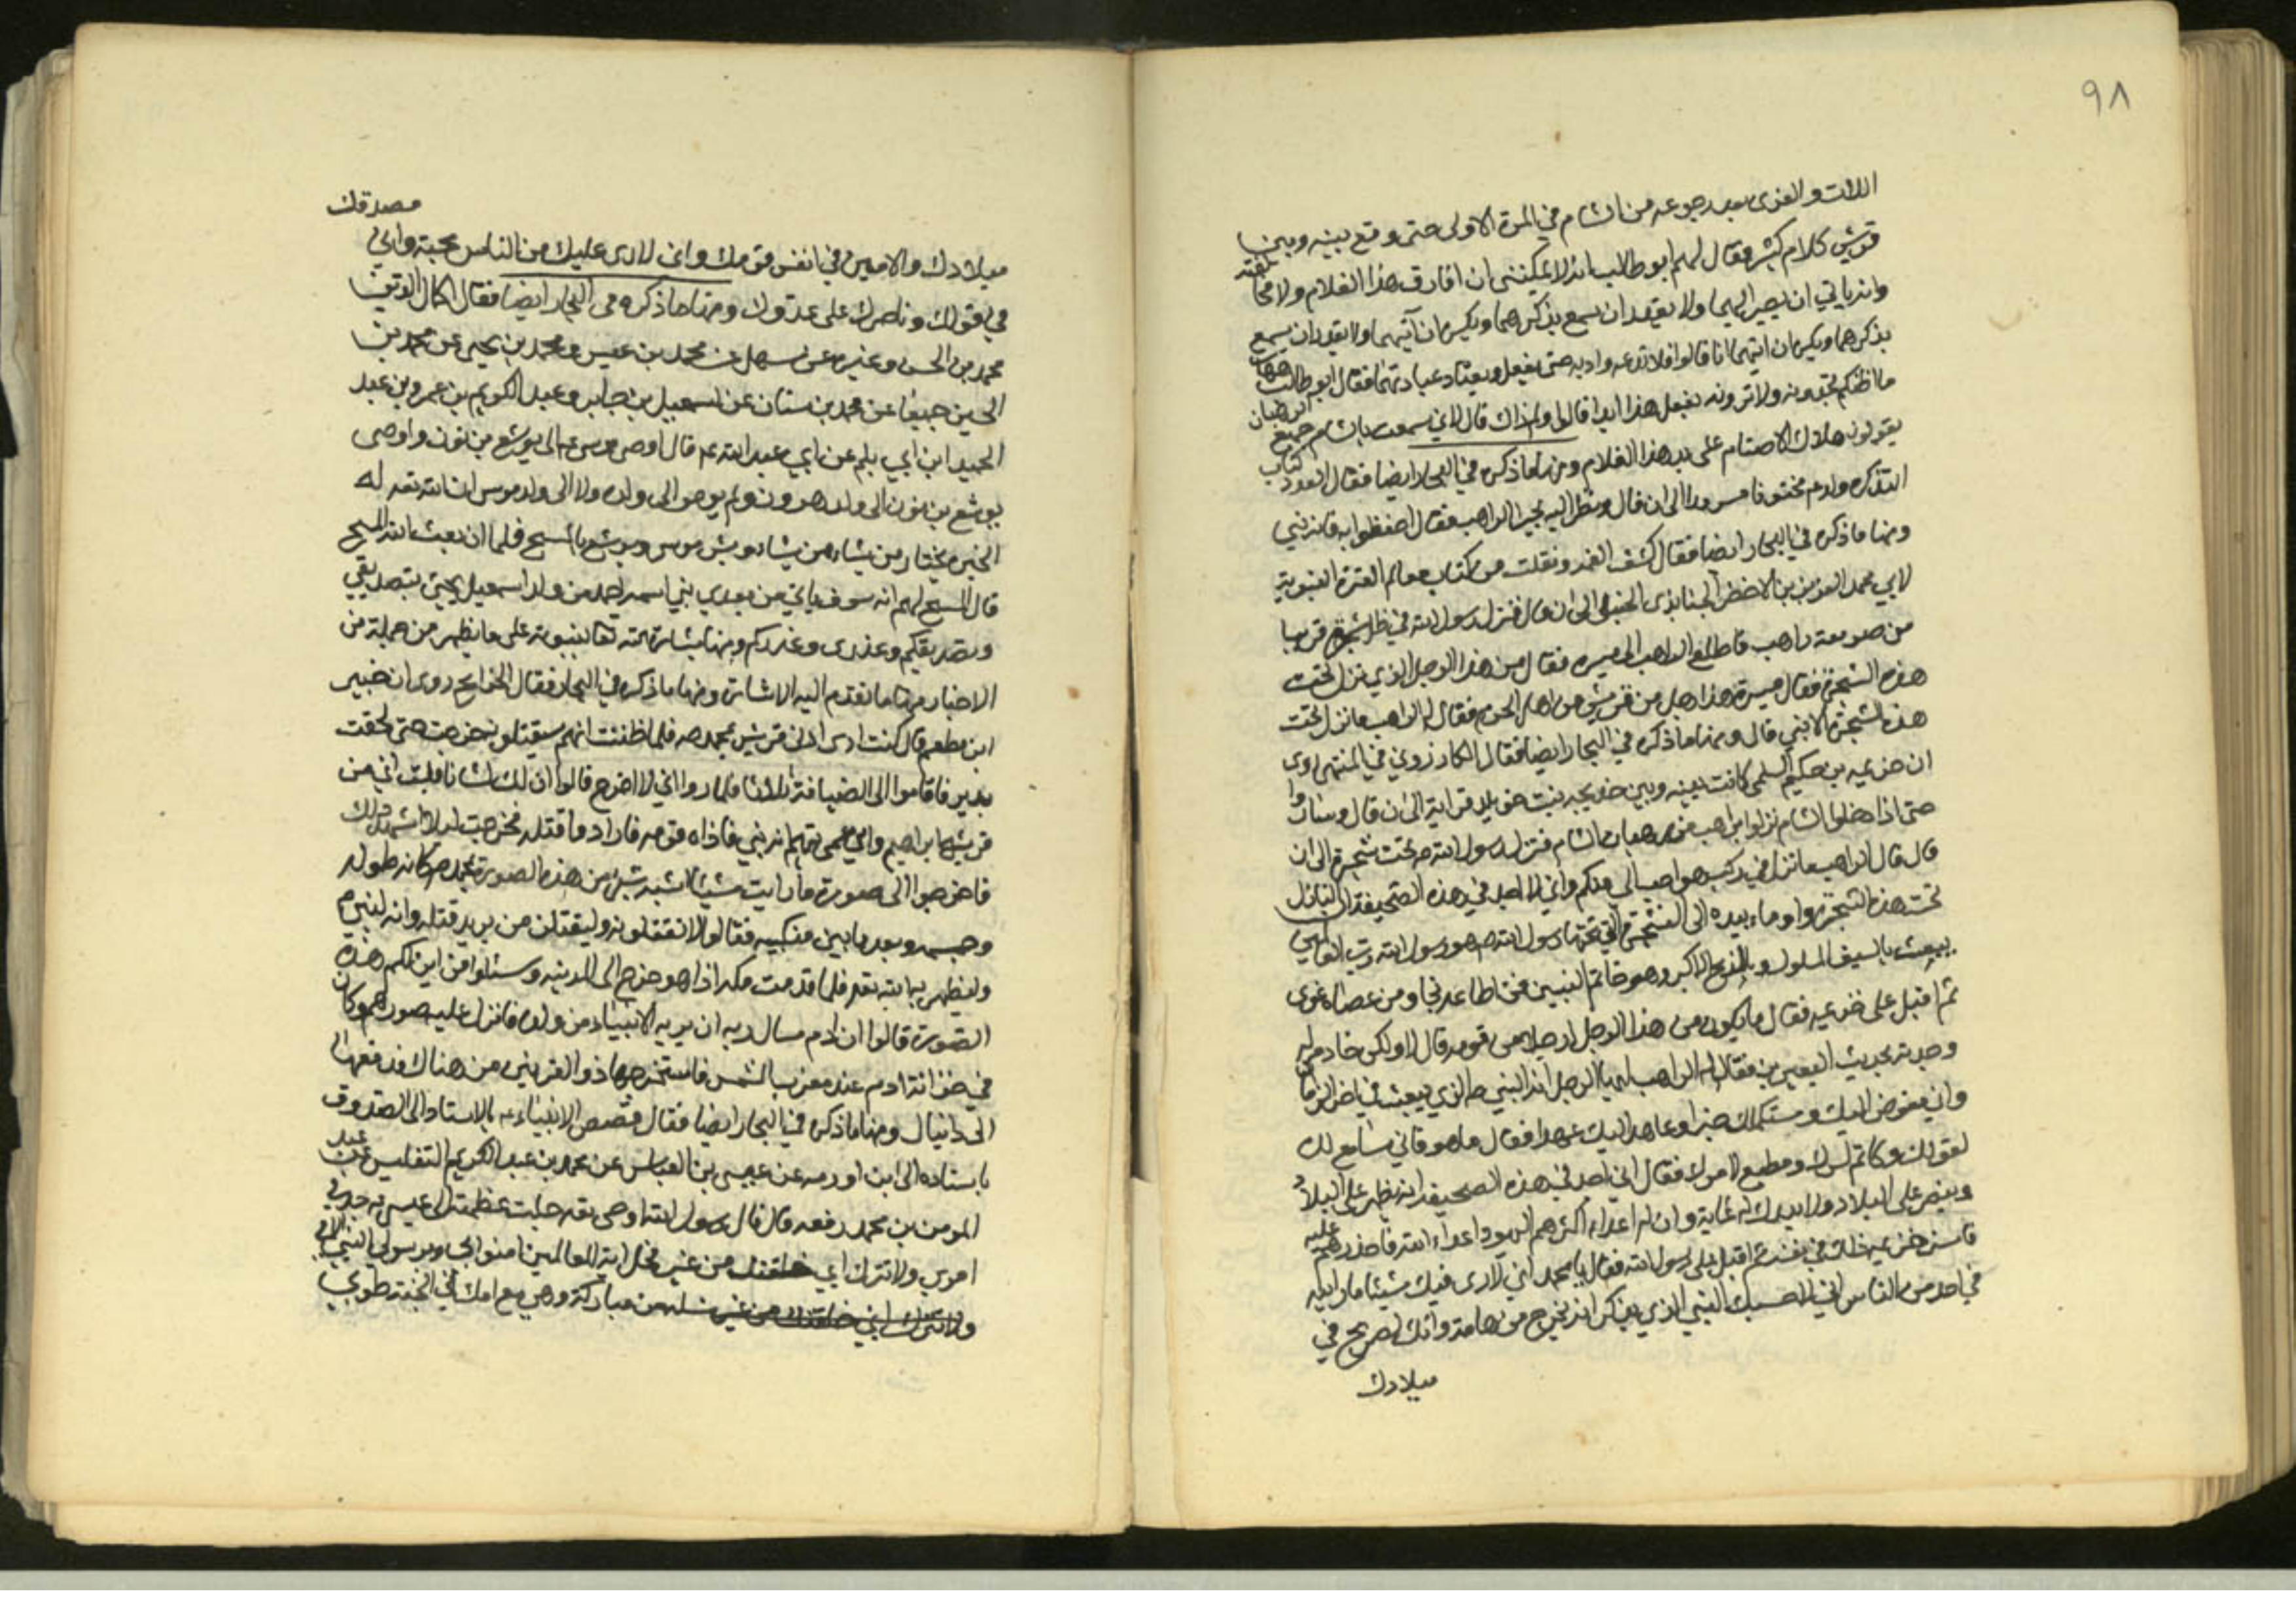 ٩٨
اللات والعزى بعد رجوعه من الشام في المرة الاولى حتى وقع بينه وبين
قريش كلام كثير فقال لهم ابو طالب انه لا يمكنني ان افارق هذا الغلام ولا مخالفته
وانه يابي ان يصير اليهما ولا يقدر ان يسمع بذكرهما ويكره ان آتيهما ولا يقدر ان يسمع
بذكرهما ويكره ان اتيهما انا قالوا فلا تدعه وادبه حتى يفعل ويعتاد عبادتهما فقال ابو طالب هيهات
ما اظنكم تجدونه ولا ترونه يفعل هذا ابدا قالوا ولم ذاك قال لاني سمعت بالشام جميع الرهبان
يقولون هلاك الاصنام على يد هذا الغلام ومنها ما ذكره في البحار ايضا فقال العدد كتاب
التذكرة ولد م مختونا مسرورا الى ان قال ونظر اليه بحيرا الراهب فقال احفظوا به فانه نبي
ومنها ما ذكره في البحار ايضا فقال كشف الغمه ونقلت من كتاب معالم العترة النبوية
لابي محمد العزيز بن الاخضر الجنابذى الحنبلي الى ان قال فنزل رسول الله في ظل شجرة قريبا
من صومعة راهب فاطلع الراهب الى ميسره فقال من هذا الرجل الذي نزل تحت
هذه الشجرة فقال ميسرة هذا رجل من قريش من اهل الحرم فقال له الراهب ما نزل تحت
هذه الشجرة الا نبي قال ومنها ما ذكره في البحار ايضا فقال الكازروني في المنتهى روى
ان خزيمه بن حكيم السلمي كانت بينه وبين خديجه بنت خويلد قرابة الى ان قال وساروا
حتى اذا دخلوا الشام نزلوا براهب من رهبان الشام فنزل رسول الله ص تحت شجرة الى ان
قال قال الراهب ما نزل في ركب هو احب الي منكم واني لاجد في هذه الصحيفة ان النازل
تحت هذه الشجرة واوماء بيده الى الشجرة التي تحتها رسول الله ص هو رسول الله رب العالمين
يبعث بالسيف المسلول وبالذبح الاكبر وهو خاتم النبيين فمن اطاعه نجا ومن عصاه غوى
ثم اقبل على خزيمه فقال ما يكون من هذا الرجل ارجل من قومه قال لا ولكن خادم له
وحدثه بحديث البعيرين فقال له الراهب ايها الرجل انه النبي ص الذي يبعث في اخر الزمان
واني مفوض اليك ومستكتمك خبرا وعاهد اليك عهدا فقال ما هو فاني سامع لك
لقولك وكاتم لسرك ومطيع لامرك فقال اني اجد في هذه الصحيفة انه يظهر على البلاد
وينصر على العباد ولا يدرك له غاية وان له اعداء اكثرهم اليهود اعداء الله فاحذرهم عليه
فاسر خزيمه ذلك في نفسه ثم اقبل على رسول الله فقال يا محمد اني لارى فيك شيئا ما رايته
في احد من الناس اني لاحسبك النبي الذي يذكر انه يخرج من تهامة وانك لصريح في
ميلادك
مصدقك
ميلادك والامين في انفس قومك واني لارى عليك من الناس محبة واني
في قولك وناصرك على عدوك ومنها ما ذكره في البحار ايضا فقال اكمال الدين
محمد بن الحسن وغيره عن سهل عن محمد بن عيسى ومحمد بن يحيى عن محمد بن
الحسين جميعا عن محمد بن سنان عن اسمعيل بن جابر وعبد الكريم بن عمرو بن عبد
الحميد ابن ابي ديلم عن ابي عبد الله ع قال اوصى موسى ع الى يوشع بن نون واوصى
يوشع بن نون الى ولد هرون ولم يوص الى ولده ولا الى ولد موسى ان الله تعه له
الخيره يختار من يشاء ممن يشاء وبشر موسى ويوشع بالمسيح فلما ان بعث الله المسيح
قال المسيح لهم انه سوف ياتي من بعدي نبي اسمه احمد من ولد اسمعيل يجئ بتصديقي
وتصديقكم وعذرى وعذركم ومنها بشارة الله تعا بنبوته على ما يظهر من جملة من
الاخبار منها ما تقدم اليه الاشارة ومنها ما ذكره في البحار فقال الخرايج روى ان جبير
ابن مطعم قال كنت اذى اذى قريش بمحمد ص فلما ظننت انهم سيقتلونه خرجت حتى لحقت
بدير فاقاموا لي الضيافة ثلاثا فلما راوا اني لا اخرج قالوا ان لك لشانا قلت اني من
قرية ابراهيم وابن عمي يزعم انه نبي فاذاه قومه فارادوا قتله فخرجت لئلا اشهد ذلك
فاخرجوا الي صورة ما رايت شيئا اشبه بشئ من هذه الصورة بمحمد ص كانه طوله
وجسمه وبعد ما بين منكبيه فقالوا لا تقتلونه وليقتلن من يريد قتله وانه لنبي
وليظهرنه الله تعه فلما قدمت مكه اذا هو خرج الى المدينه وسئلوا من اين لكم هذه
الصورة قالوا ان ادم سال ربه ان يريه الانبياء من ولده فانزل عليه صورهم وكان
في خزانة ادم عند مغرب الشمس فاستخرجها ذو القرنين من هناك فدفعها
الى دانيال ومنها ما ذكره في البحار ايضا فقال قصص الانبياء ع بالاسناد الى الصدوق
باسناده الى ابن اورمه عن عيسى بن العباس عن محمد بن عبد الكريم التفليس عن عبد
المومن بن محمد رفعه قال قال رسول الله اوحى تعه جلت عظمته الى عيسى ع جد في
امري ولا تترك اني خلقتك من غير فحل اية للعالمين امنوا بي وبرسولي النبي الامي
ولا تترك اني خلقتك من غير نسله من مباركة وهي مع امك في الجنة طوبى